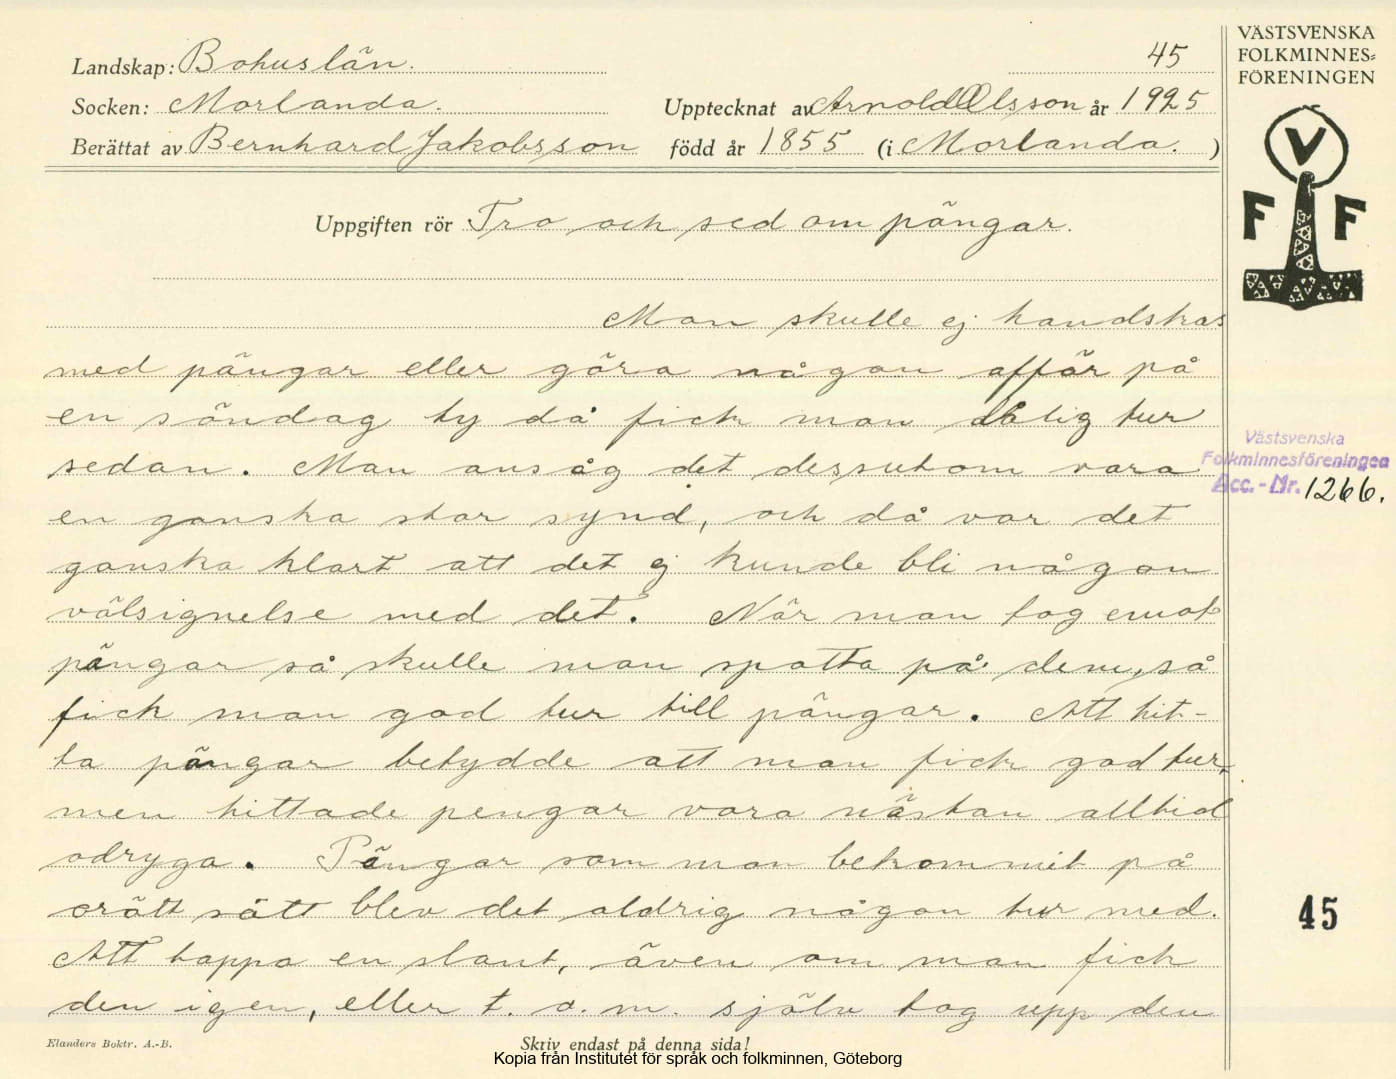 VÄSTSVENSKA
FOLKMINNES=
FÖRENINGEN
V
F F
45
Landskap: Bohuslän.
Socken: Morlanda. Upptecknat av Arnold Olsson år 1925
Berättat av Bernhard Jakobsson född år 1855 (i Morlanda. )
Uppgiften rör Tro och sed om pängar.
Man skulle ej handskas
med pängar eller göra någon affär på
en söndag ty då fick man dålig tur
sedan. Man ansåg det dessutom vara
en ganska stor synd, och då var det
ganska klart att det ej kunde bli någon
välsignelse med det. När man tog emot
pängar så skulle man spotta på dem, så
fick man god tur till pängar. Att hit-
ta pängar betydde att man fick god tur,
men hittade pengar vara nästan alltid
odryga. Pängar som man bekommit på
orätt sätt blev det aldrig någon tur med.
Att tappa en slant, även om man fick
den igen, eller t. o. m. själv tog upp den
Västsvenska
Folkminnesföreningen
Acc.-Nr. 1266.
45
Elanders Boktr. A.-B.
Skriv endast på denna sida!
Kopia från Institutet för språk och folkminnen, Göteborg